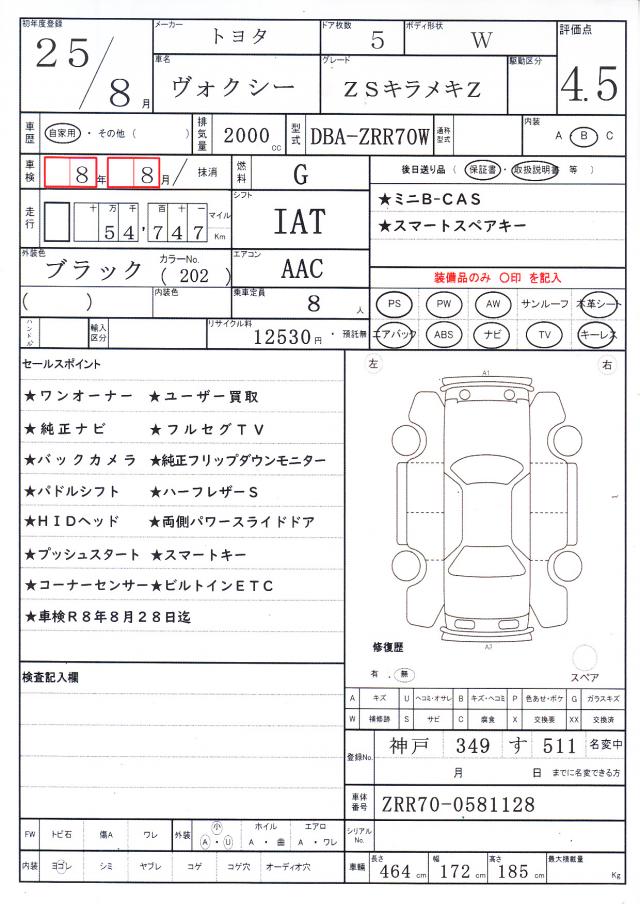 初年度登録 25/8月 メーカー トヨタ ドア枚数 5 ボディ形状 W 評価点 4.5
車名 ヴォクシー グレード ZSキラメキZ 駆動区分
車歴 自家用・その他( ) 排気量 2000cc 型式 DBA-ZRR70W 通称型式 内装 A・B・C
車検 8年 8月/ 抹消 燃料 G 後日送り品(保証書・取扱説明書 等 )
走行 十万千百十一 54,747 マイル Km シフト IAT ★ミニB-CAS
★スマートスペアキー
外装色 ブラック カラーNo. (202) エアコン AAC 装備品のみ 〇印 を記入
( ) 内装色 乗車定員 8人 PS PW AW サンルーフ 本革シート
ハンドル 輸入区分 リサイクル料 12530円・預託無 エアバック ABS ナビ TV キーレス
セールスポイント 左 右
A1
★ワンオーナー ★ユーザー買取
★純正ナビ ★フルセグTV
★バックカメラ ★純正フリップダウンモニター
★パドルシフト ★ハーフレザーS
★HIDヘッド ★両側パワースライドドア
★プッシュスタート ★スマートキー
★コーナーセンサー ★ビルトインETC
★車検R8年8月28日迄
修復歴 A2
有 . 無 スペア
検査記入欄
A キズ U ヘコミ・オサレ B キズ・ヘコミ P 色あせ・ボケ G ガラスキズ
W 補修跡 S サビ C 腐食 X 交換要 XX 交換済
登録No. 神戸 349 す 511 名変中
月 日 までに名変できる方
車体番号 ZRR70-0581128
シリアルNo.
FW トビ石 傷A ワレ 外装 小 A・U ホイル A・曲 エアロ A・ワレ
内装 ヨゴレ シミ ヤブレ コゲ コゲ穴 オーディオ穴 車輛 長さ 464cm 幅 172cm 高さ 185cm 最大積載量 Kg